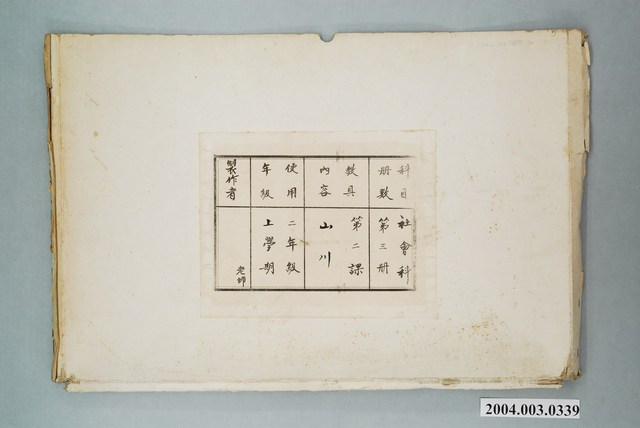 科目 社會科
册數 第三册
教具 第二課
內容 山川
使用 二年級
年級 上學期
製作者 老師
2004.003.0339